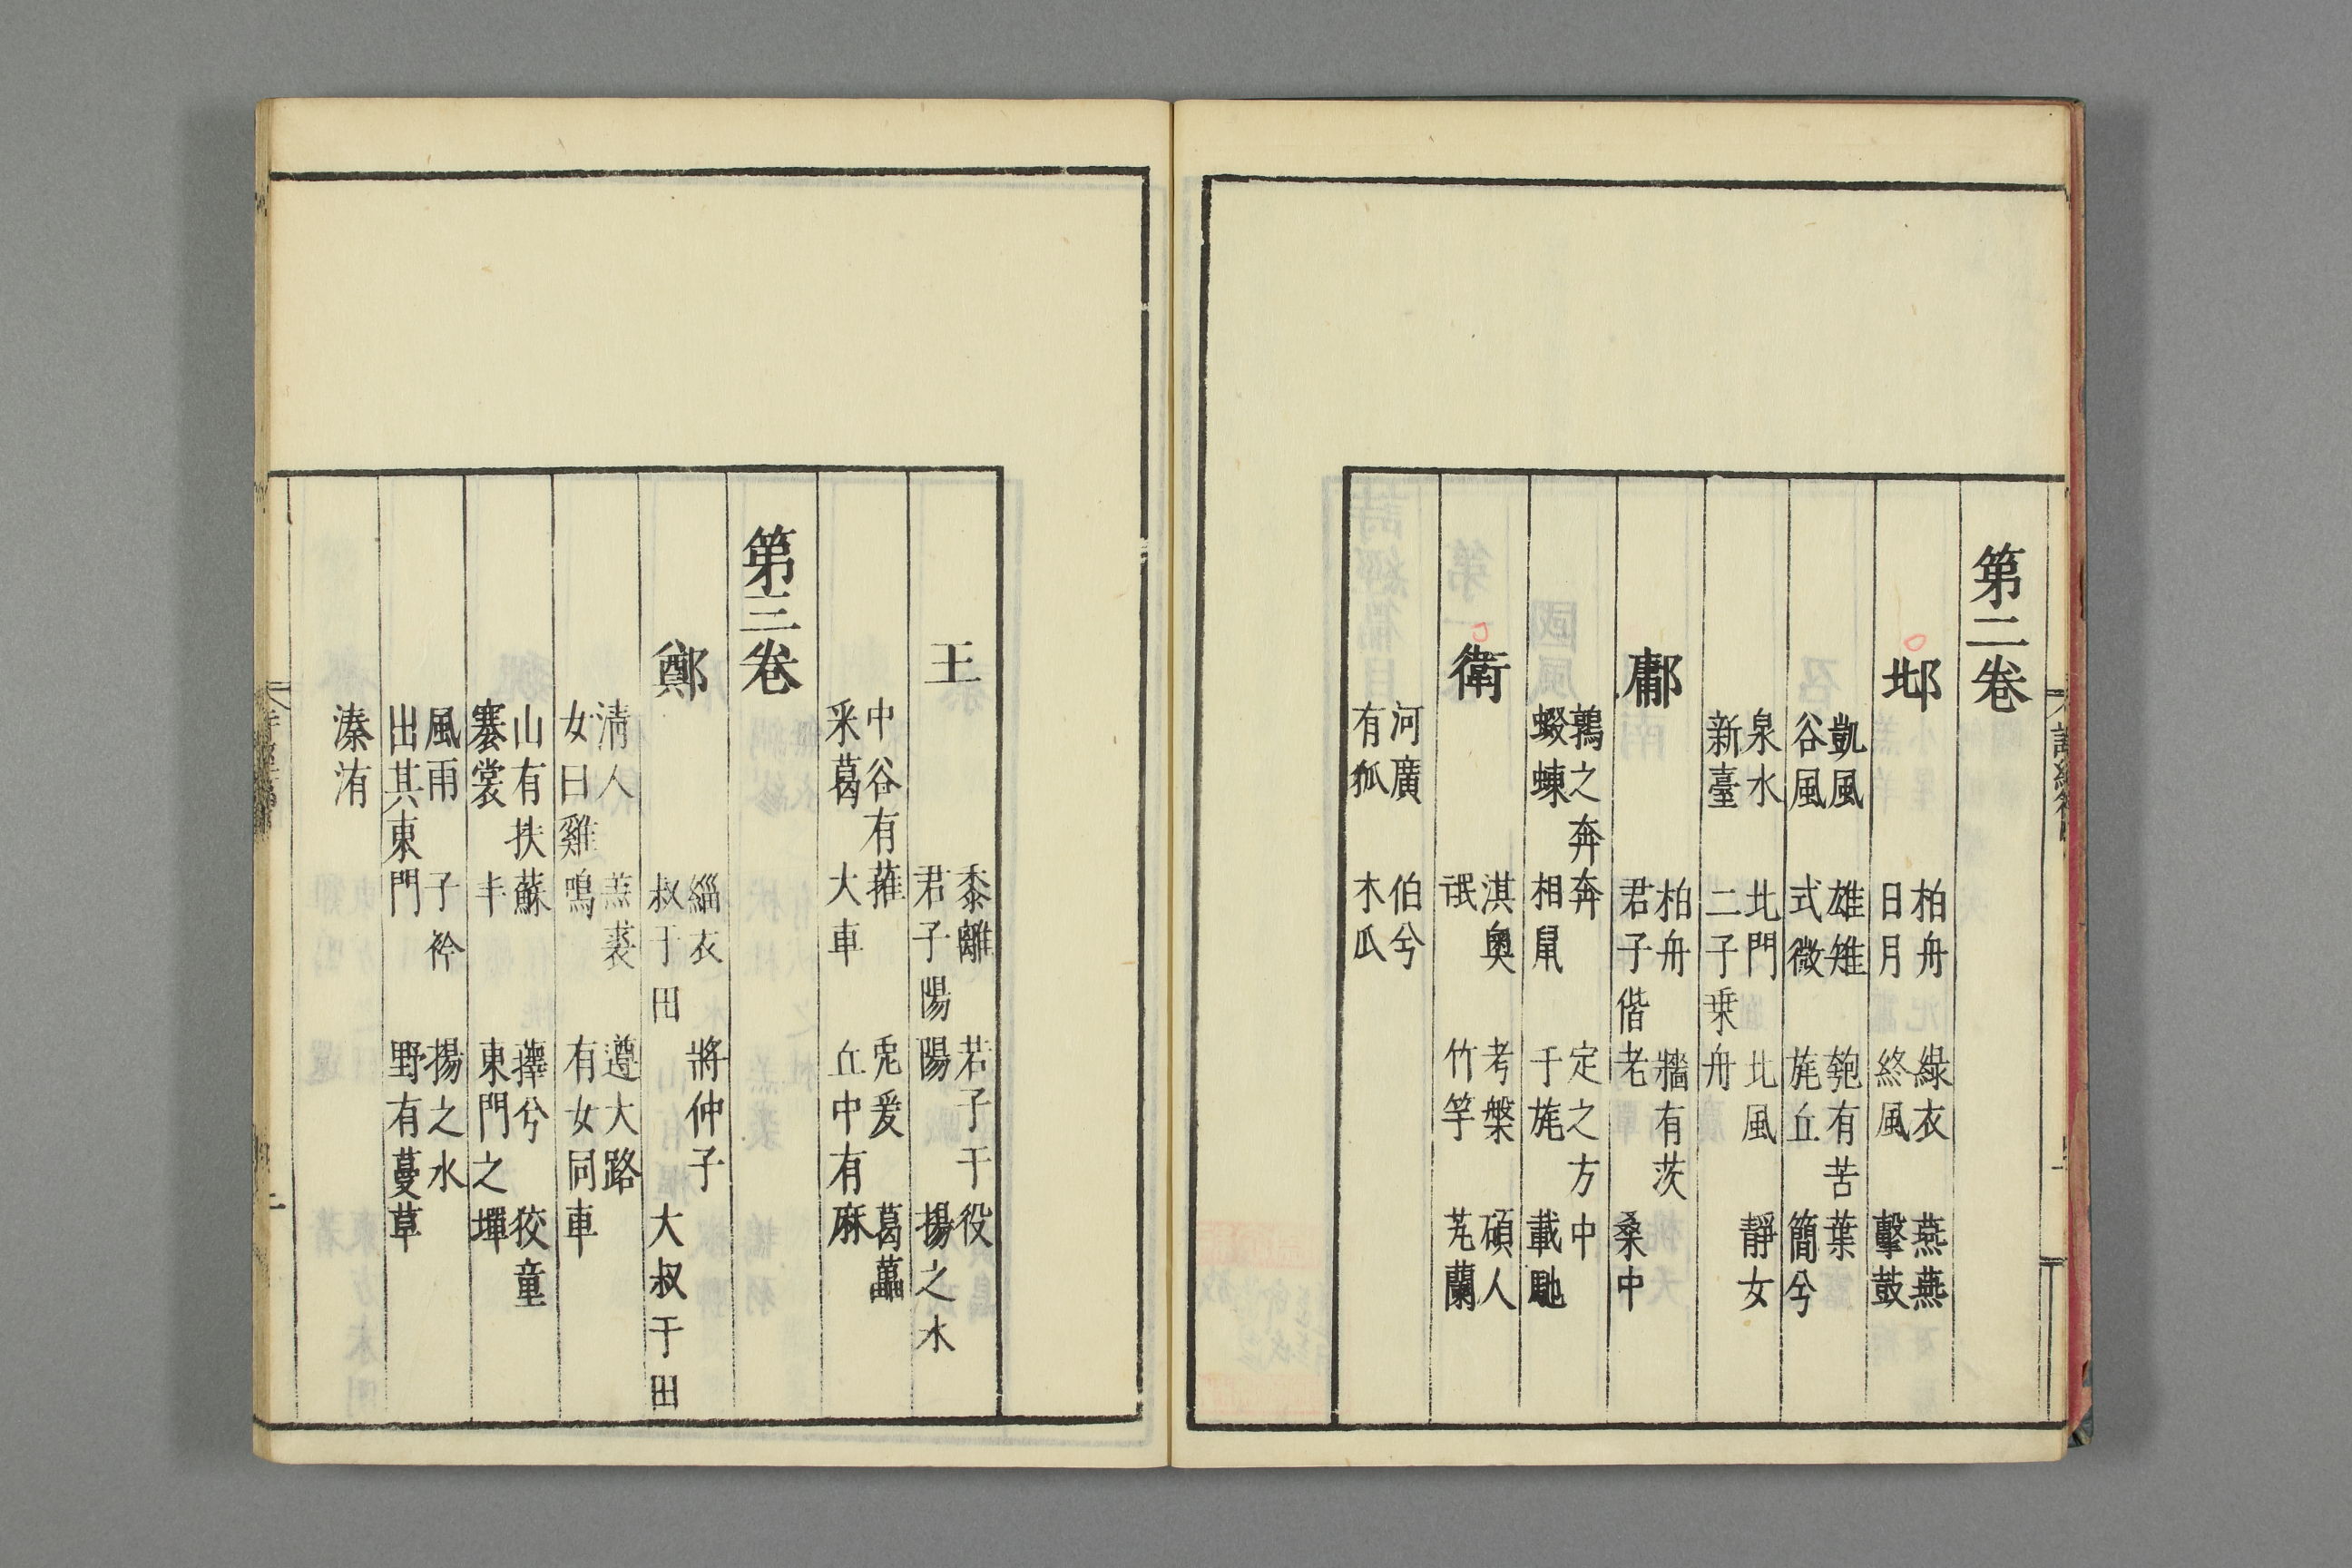 第二卷
邶
柏舟 綠衣 燕燕
日月 終風 擊鼓
凱風 雄雉 匏有苦葉
谷風 式微 旄丘 簡兮
泉水 北門 北風 靜女
新臺 二子乗舟
鄘
柏舟 牆有茨
君子偕老 桑中
鶉之奔奔 定之方中
蝃蝀 相鼠 干旄 載馳
衛
淇奧 考槃 碩人
氓 竹竿 芄蘭
河廣 伯兮
有狐 木瓜
王
黍離 君子于役
君子陽陽 揚之水
中谷有蓷 兎爰 葛藟
采葛 大車 丘中有麻
第三卷
鄭
緇衣 將仲子
叔于田 大叔于田
清人 羔裘 遵大路
女曰雞鳴 有女同車
山有扶蘇 蘀兮 狡童
褰裳 丰 東門之墠
風雨 子衿 揚之水
出其東門 野有蔓草
溱洧